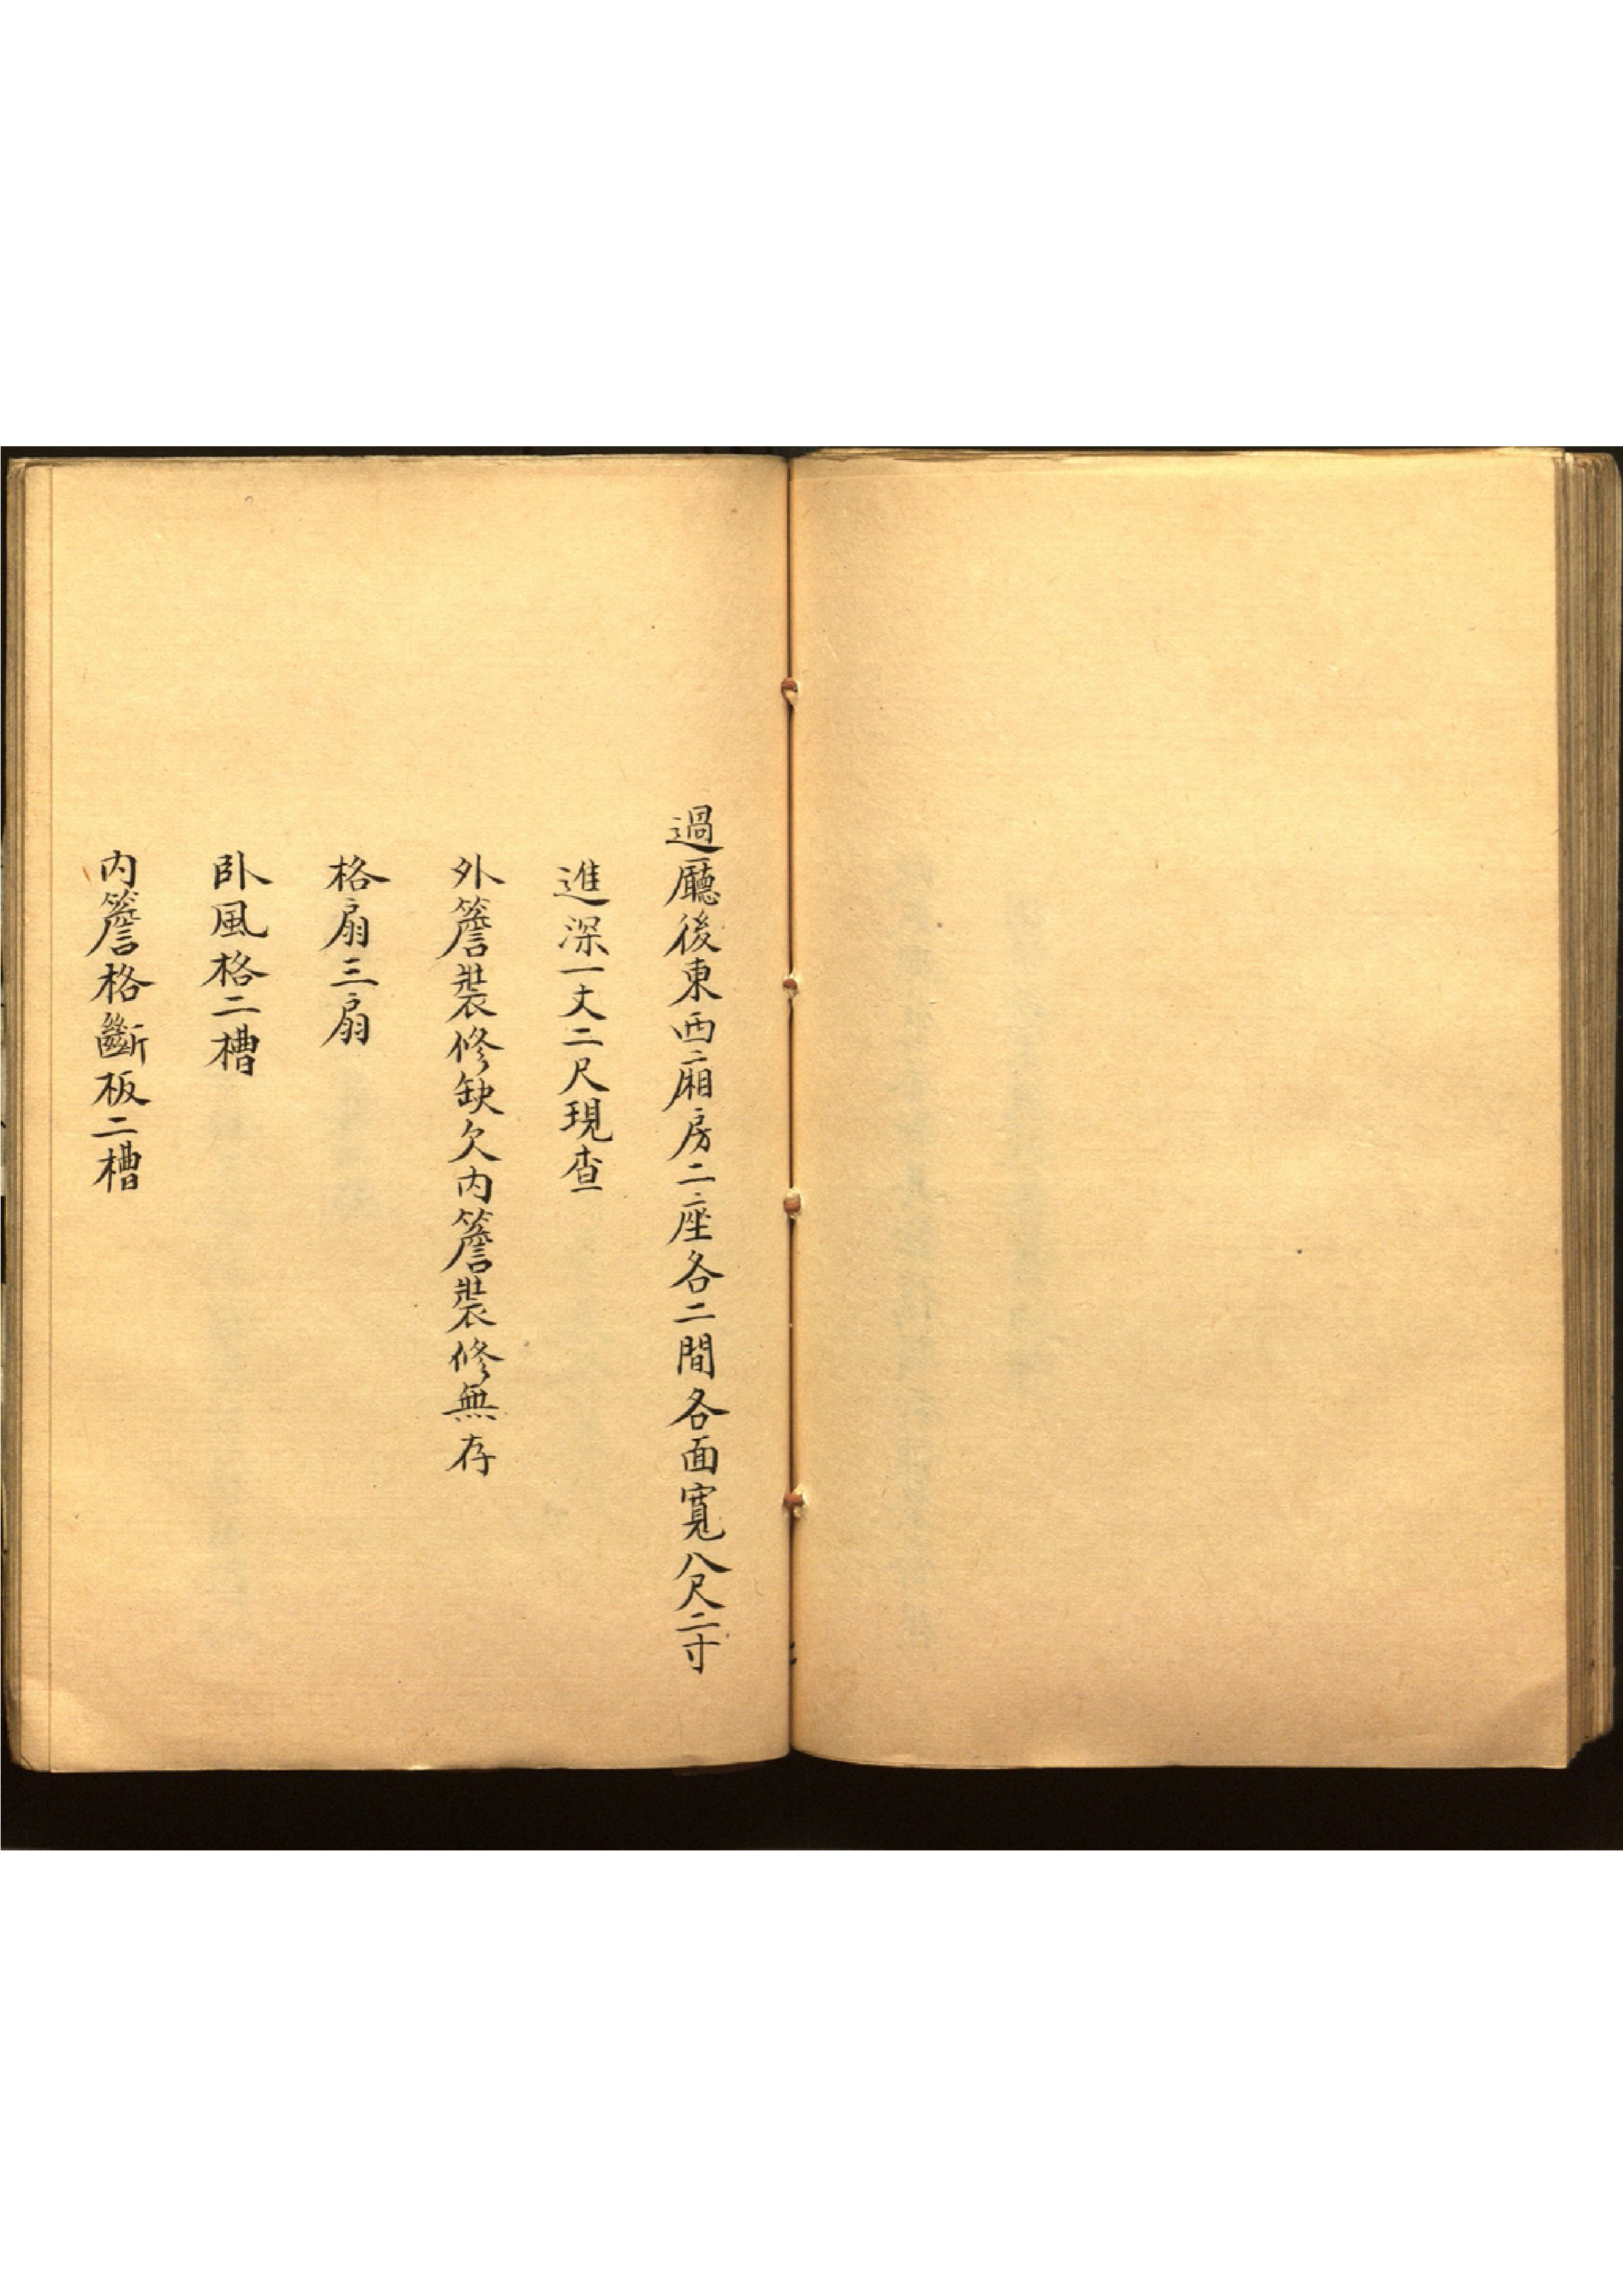 過廳後東西廂房二座各二間各面寬八尺二寸
進深一丈二尺現查
外簷裝修缺欠内簷裝修無存
格扇三扇
卧風格二槽
内簷格斷板二槽